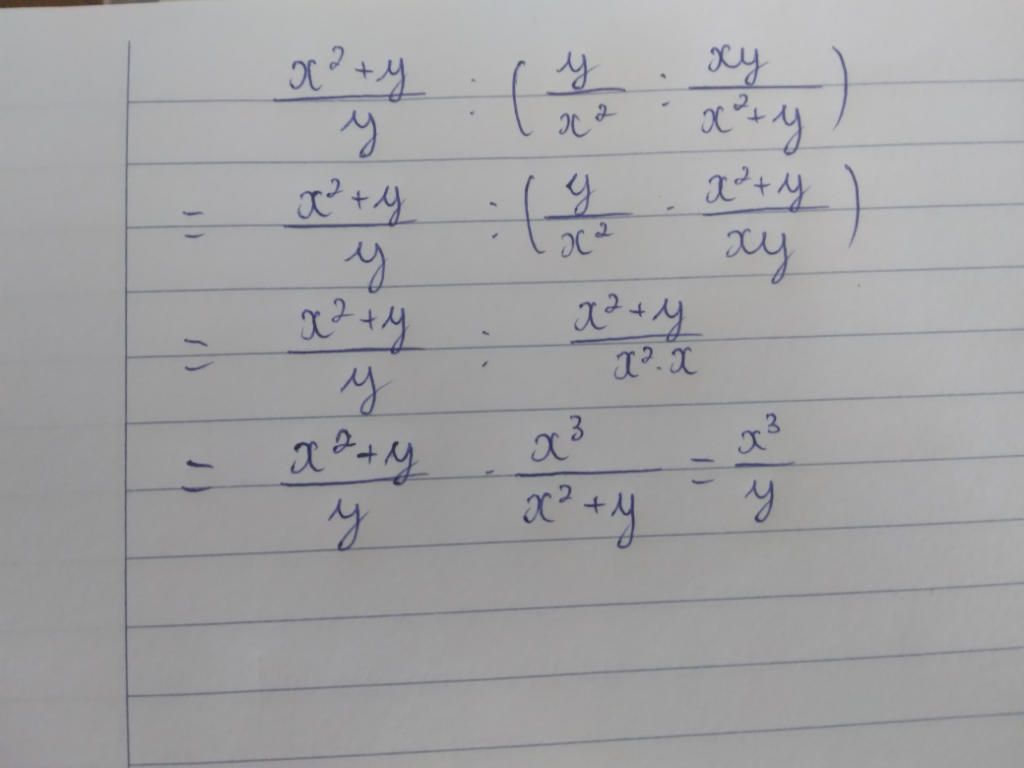 $\frac{x^2+y}{y} : \left( \frac{y}{x^2} : \frac{xy}{x^2+y} \right)$
$= \frac{x^2+y}{y} : \left( \frac{y}{x^2} \cdot \frac{x^2+y}{xy} \right)$
$= \frac{x^2+y}{y} : \frac{x^2+y}{x^2 \cdot x}$
$= \frac{x^2+y}{y} \cdot \frac{x^3}{x^2+y} = \frac{x^3}{y}$